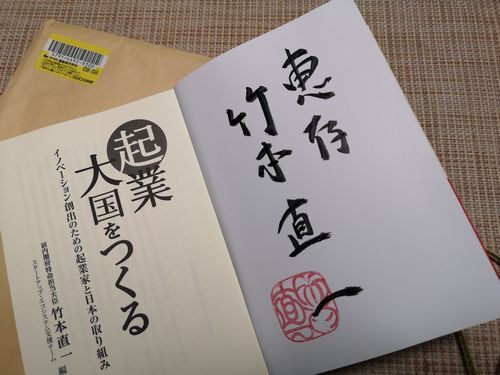 恵存
竹本直一
起業
大国をつくる
イノベーション創出のための起業家と日本の取り組み
前内閣府特命担当大臣 竹本直一 編
スタートアップ・エコシステム支援チーム